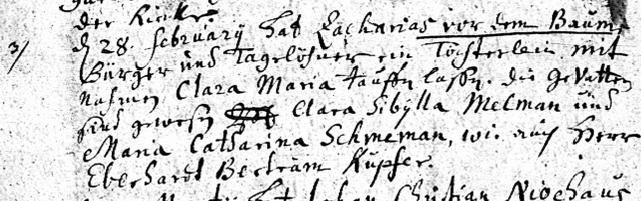 der Kinder
3/ d 28. februarÿ hat Zacharias vor dem Baum
Bürger und Tagelöhner ein Töchterlein mit
nahmen Clara Maria tauffen lassen. die Gevattern
sind gewesen Clara Sibylla Melman und
Maria Catharina Schmeman, wie auch Herr
Eberhardt Bertram Küpfer.
hat Johan Christian Niehaus